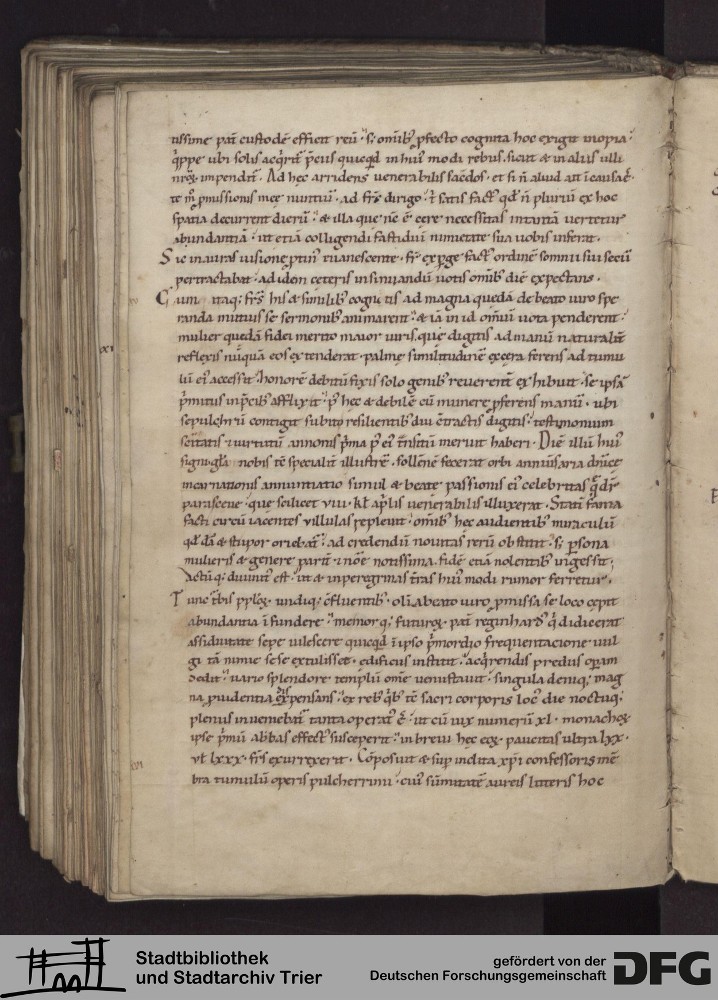 tissime patē custodē efficit reū · s; omīb; ꝓfecto cognita hoc exigit inopia ·
q̄ppe ubi solis acq̄rit̄ p̄cius quicqd in hui' modi rebus, sicut & in aliis ulli
impendit̄ . Ad hec arridens venerabilis sacdos · et si n̄ aliud
te missionis meę nuntiū · ad frs̄ dirigo · satis fact' n̄ plurium ex hoc
spatia decurrent dierū · & illa que nc̄ ē cere necessitas in tantā uertetur
abundantiā · ut etiā colligendi fastidiū nimietate sua uobis inferat .
Sic in auras uisione ptin' euanescente · fr̄ exꝑge fact' ordinē somnii sui secū
pertractabat · ad idem ceteris insinuandū uotis omīb; diē expectans .
Cum itaq; frs̄ his & similib; cognitis ad magna quedā de beato uiro spe
randa mutuis se sermonib; animarent · & iā in id omiū uota penderent ·
mulier quedā fidei merito maior uiris, que digitis ad manū naturalit̄
reflexis nūquā eos extenderat · palmę similitudinē ferens ad tumu
lū ei' accessit · honorē debitū fixis solo genib; reuerent̄ exhibuit · se ipsā
p̄mitus in p̄cib; afflixit · p' hec & debilē cū munere p̄ferens manū · ubi
sepulchrū contigit subito resilientib; diu c̄tractis digitis · testimonium
sc̄itatis & uirtutū annonis p̄ma p' ei' t̄nsitū meruit haberi . Diē illū hui'
signi gla nobis tē specialit̄ illustrē · sollēnē fecerat orbi anniūsaria dn̄icę
incarnationis annuntiatio simul & beatę passionis ei' celebritas
parasceue · que scilicet VIII · kl' aprlis uenerabilis illuxerat . Statī fama
facti circū iacentes uillulas repleuit · omīb; hęc audientib; miraculū
qd' & stupor oriebat̄ · ad credendū nouitas rerū obstitit · s; ꝑsona
mulieris & genere parit̄ & noīe notissima, fidē etiā nolentib; ingessit ·
Actū q; diuinit' est · ut & in peregrinas t̄ras hui' modi rumor ferretur .
Tunc pplox · undiq; c̄fluentib; · olī a beato uiro ꝓmissa se loco cepit
abundantia īfundere · memor q; futurox · patē reginhard' qd didicerat
assiduitate sepe uilescere quicqd in ipso p̄mordio frequentacione uul
gi tā nimie sese extulisset · edificiis institit · acq̄rendis prediis operam
dedit · uario splendore templū om̄e uenustauit · singula deniq; mag
na puidentia expensans · ex reb; q̄b; tē sacri corporis loc' die noctuq;
plenus inueniebat̄ tanta operat' ē · ut cū uix numerū XL · monachox
ipse p̄mū abbas effect' susceperit · in breui hec eox paucitas ultra LXX ·
ul' LXXX · frs̄ exurrexerit . Cōposuit & sup inclita xp̄i confessoris mē
bra tumulū operis pulcherrimi · cui' sūmitatē aureis litteris hoc
XI
XVI
Stadtbibliothek
und Stadtarchiv Trier
gefördert von der
Deutschen Forschungsgemeinschaft
DFG